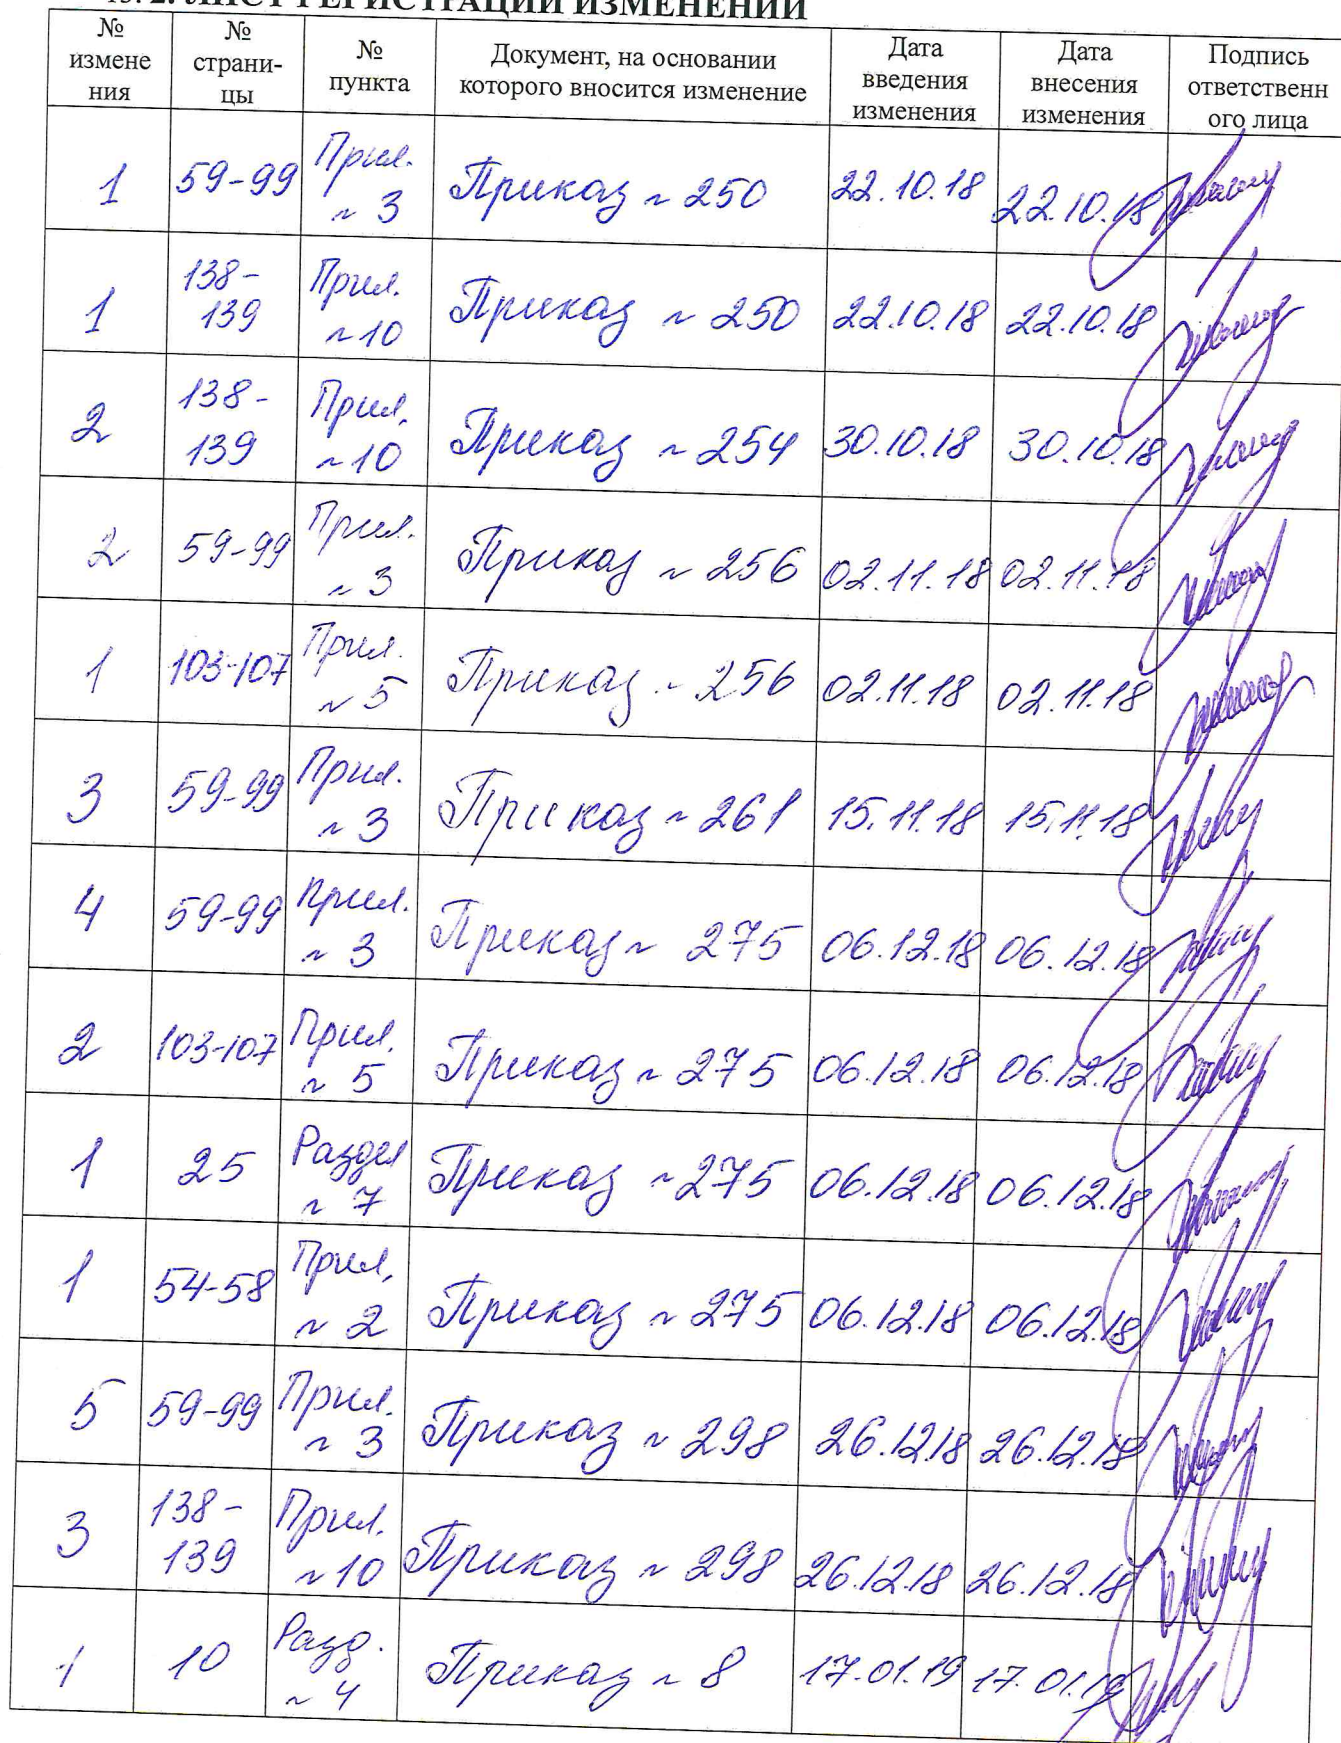 2. ЛИСТ РЕГИСТРАЦИИ ИЗМЕНЕНИЙ
№ измене ния | № страни- цы | № пункта | Документ, на основании которого вносится изменение | Дата введения изменения | Дата внесения изменения | Подпись ответственн ого лица
1 | 59-99 | Прил. ~ 3 | Приказ ~ 250 | 22.10.18 | 22.10.18
1 | 138-139 | Прил. ~ 10 | Приказ ~ 250 | 22.10.18 | 22.10.18
2 | 138-139 | Прил. ~ 10 | Приказ ~ 254 | 30.10.18 | 30.10.18
2 | 59-99 | Прил. ~ 3 | Приказ ~ 256 | 02.11.18 | 02.11.18
1 | 103-107 | Прил. ~ 5 | Приказ ~ 256 | 02.11.18 | 02.11.18
3 | 59-99 | Прил. ~ 3 | Приказ ~ 261 | 15.11.18 | 15.11.18
4 | 59-99 | Прил. ~ 3 | Приказ ~ 275 | 06.12.18 | 06.12.18
2 | 103-107 | Прил. ~ 5 | Приказ ~ 275 | 06.12.18 | 06.12.18
1 | 25 | Раздел ~ 7 | Приказ ~ 275 | 06.12.18 | 06.12.18
1 | 54-58 | Прил. ~ 2 | Приказ ~ 275 | 06.12.18 | 06.12.18
5 | 59-99 | Прил. ~ 3 | Приказ ~ 298 | 26.12.18 | 26.12.18
3 | 138-139 | Прил. ~ 10 | Приказ ~ 298 | 26.12.18 | 26.12.18
1 | 10 | Разд. ~ 4 | Приказ ~ 8 | 17.01.19 | 17.01.19